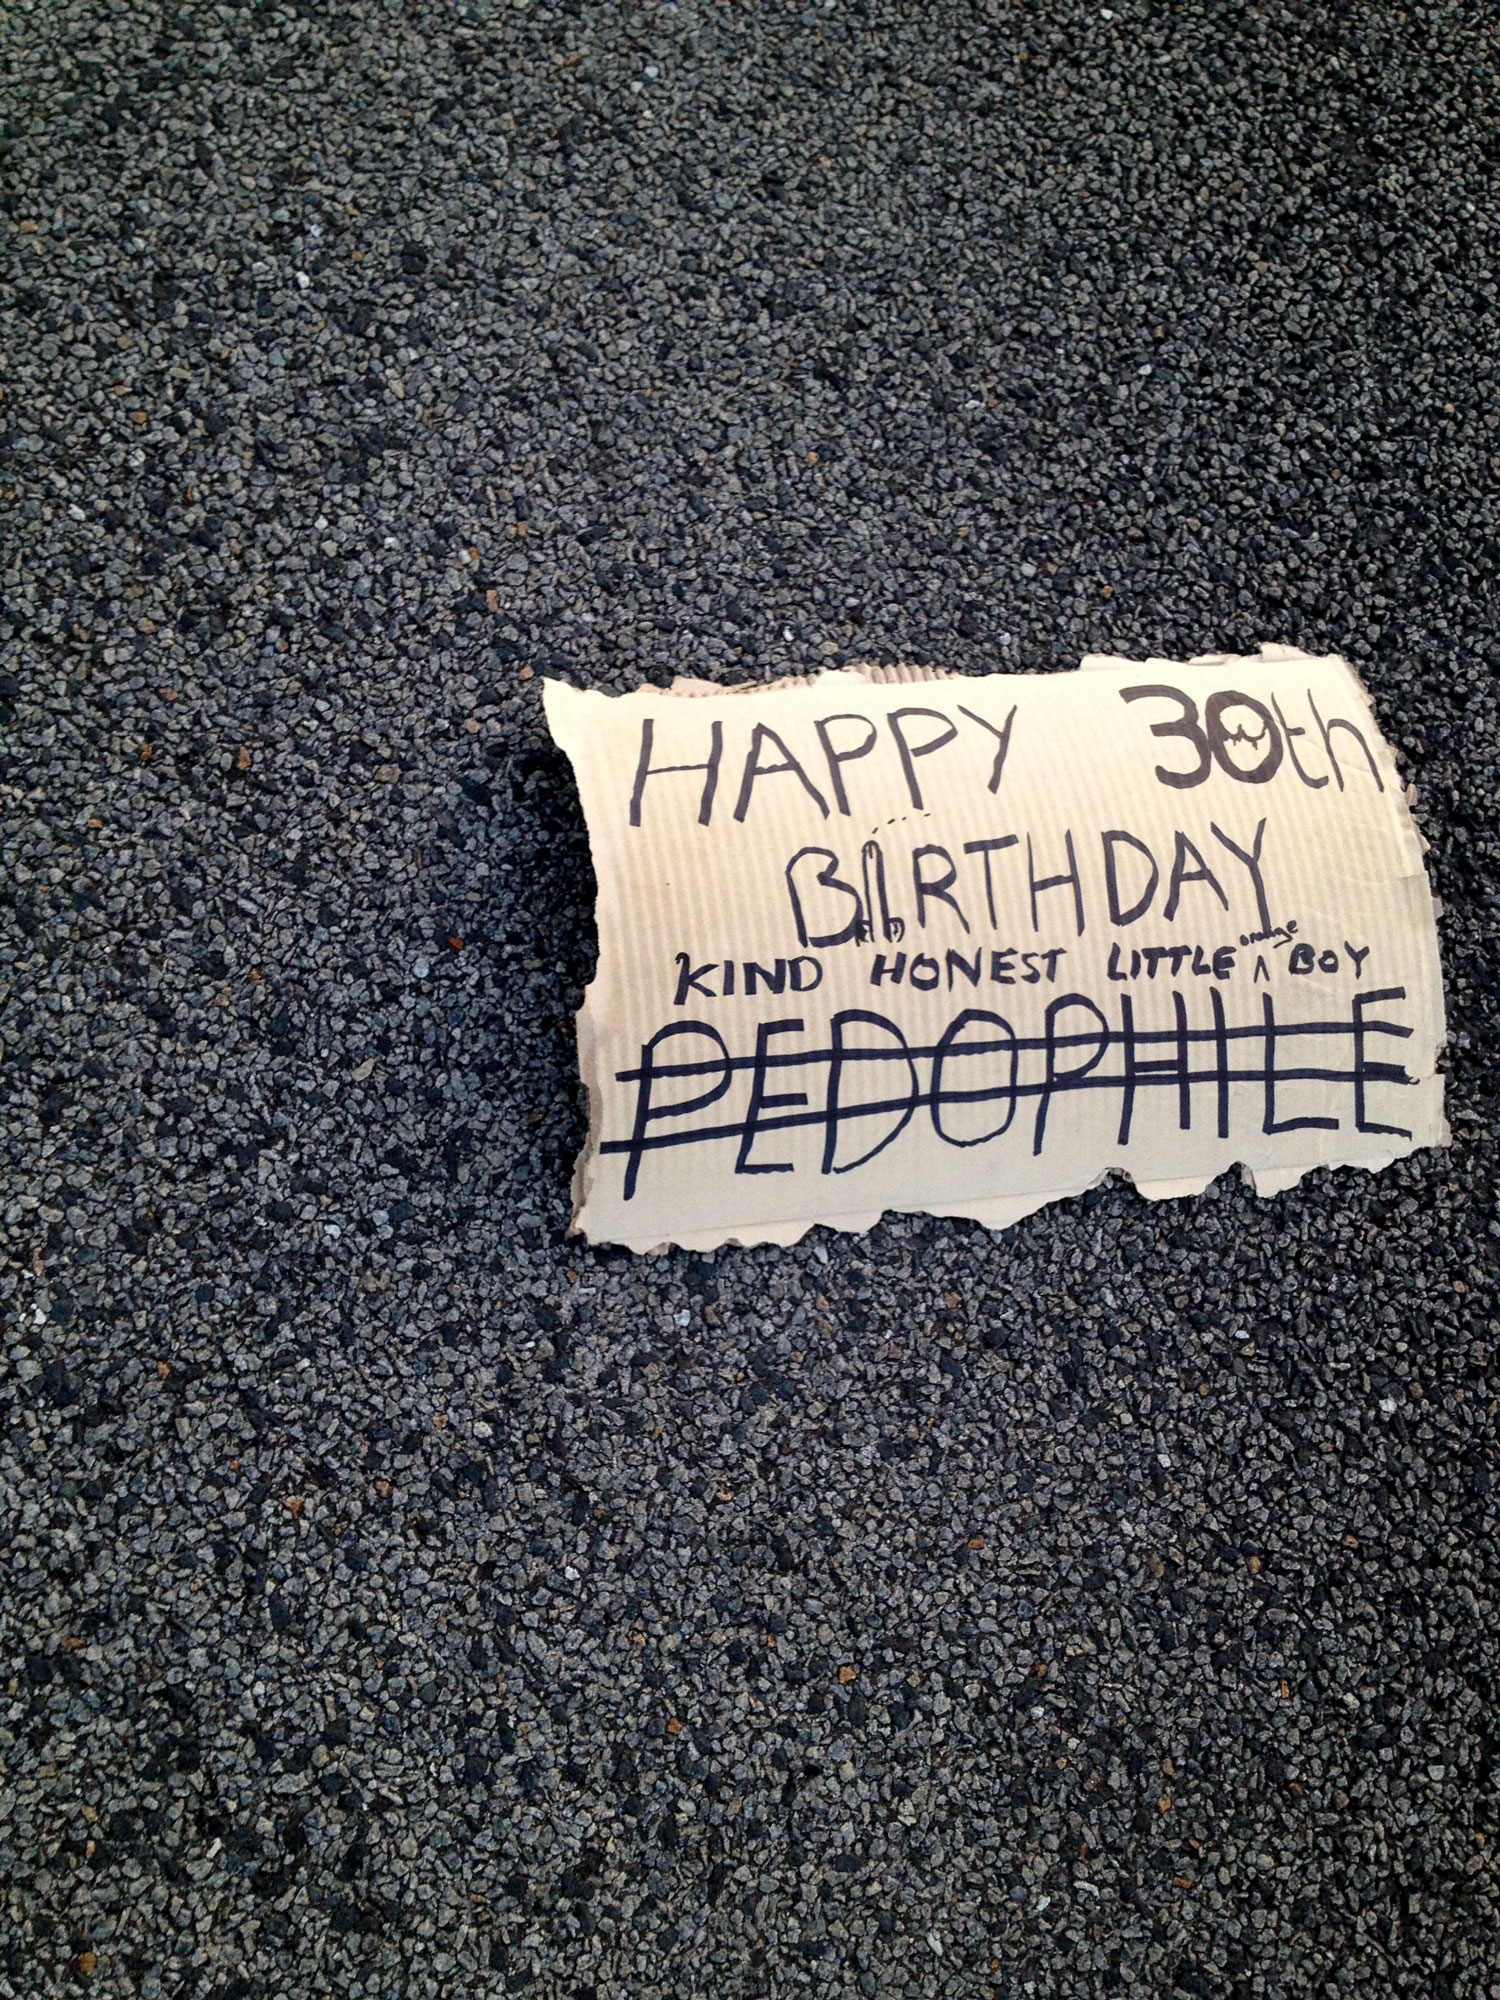 HAPPY 30th
BIRTHDAY
KIND HONEST LITTLE orange BOY
PEDOPHILE